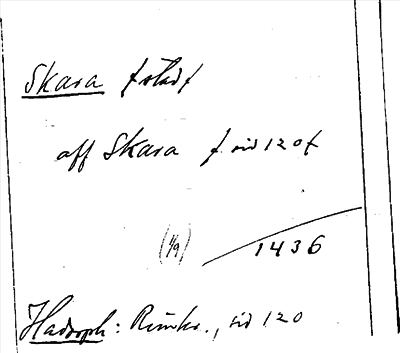 Skara ƒ stad ƒ
aff Skara ƒ sid 120 ƒ
(1/9) 1436
Hadorph: Rimkr., sid 120